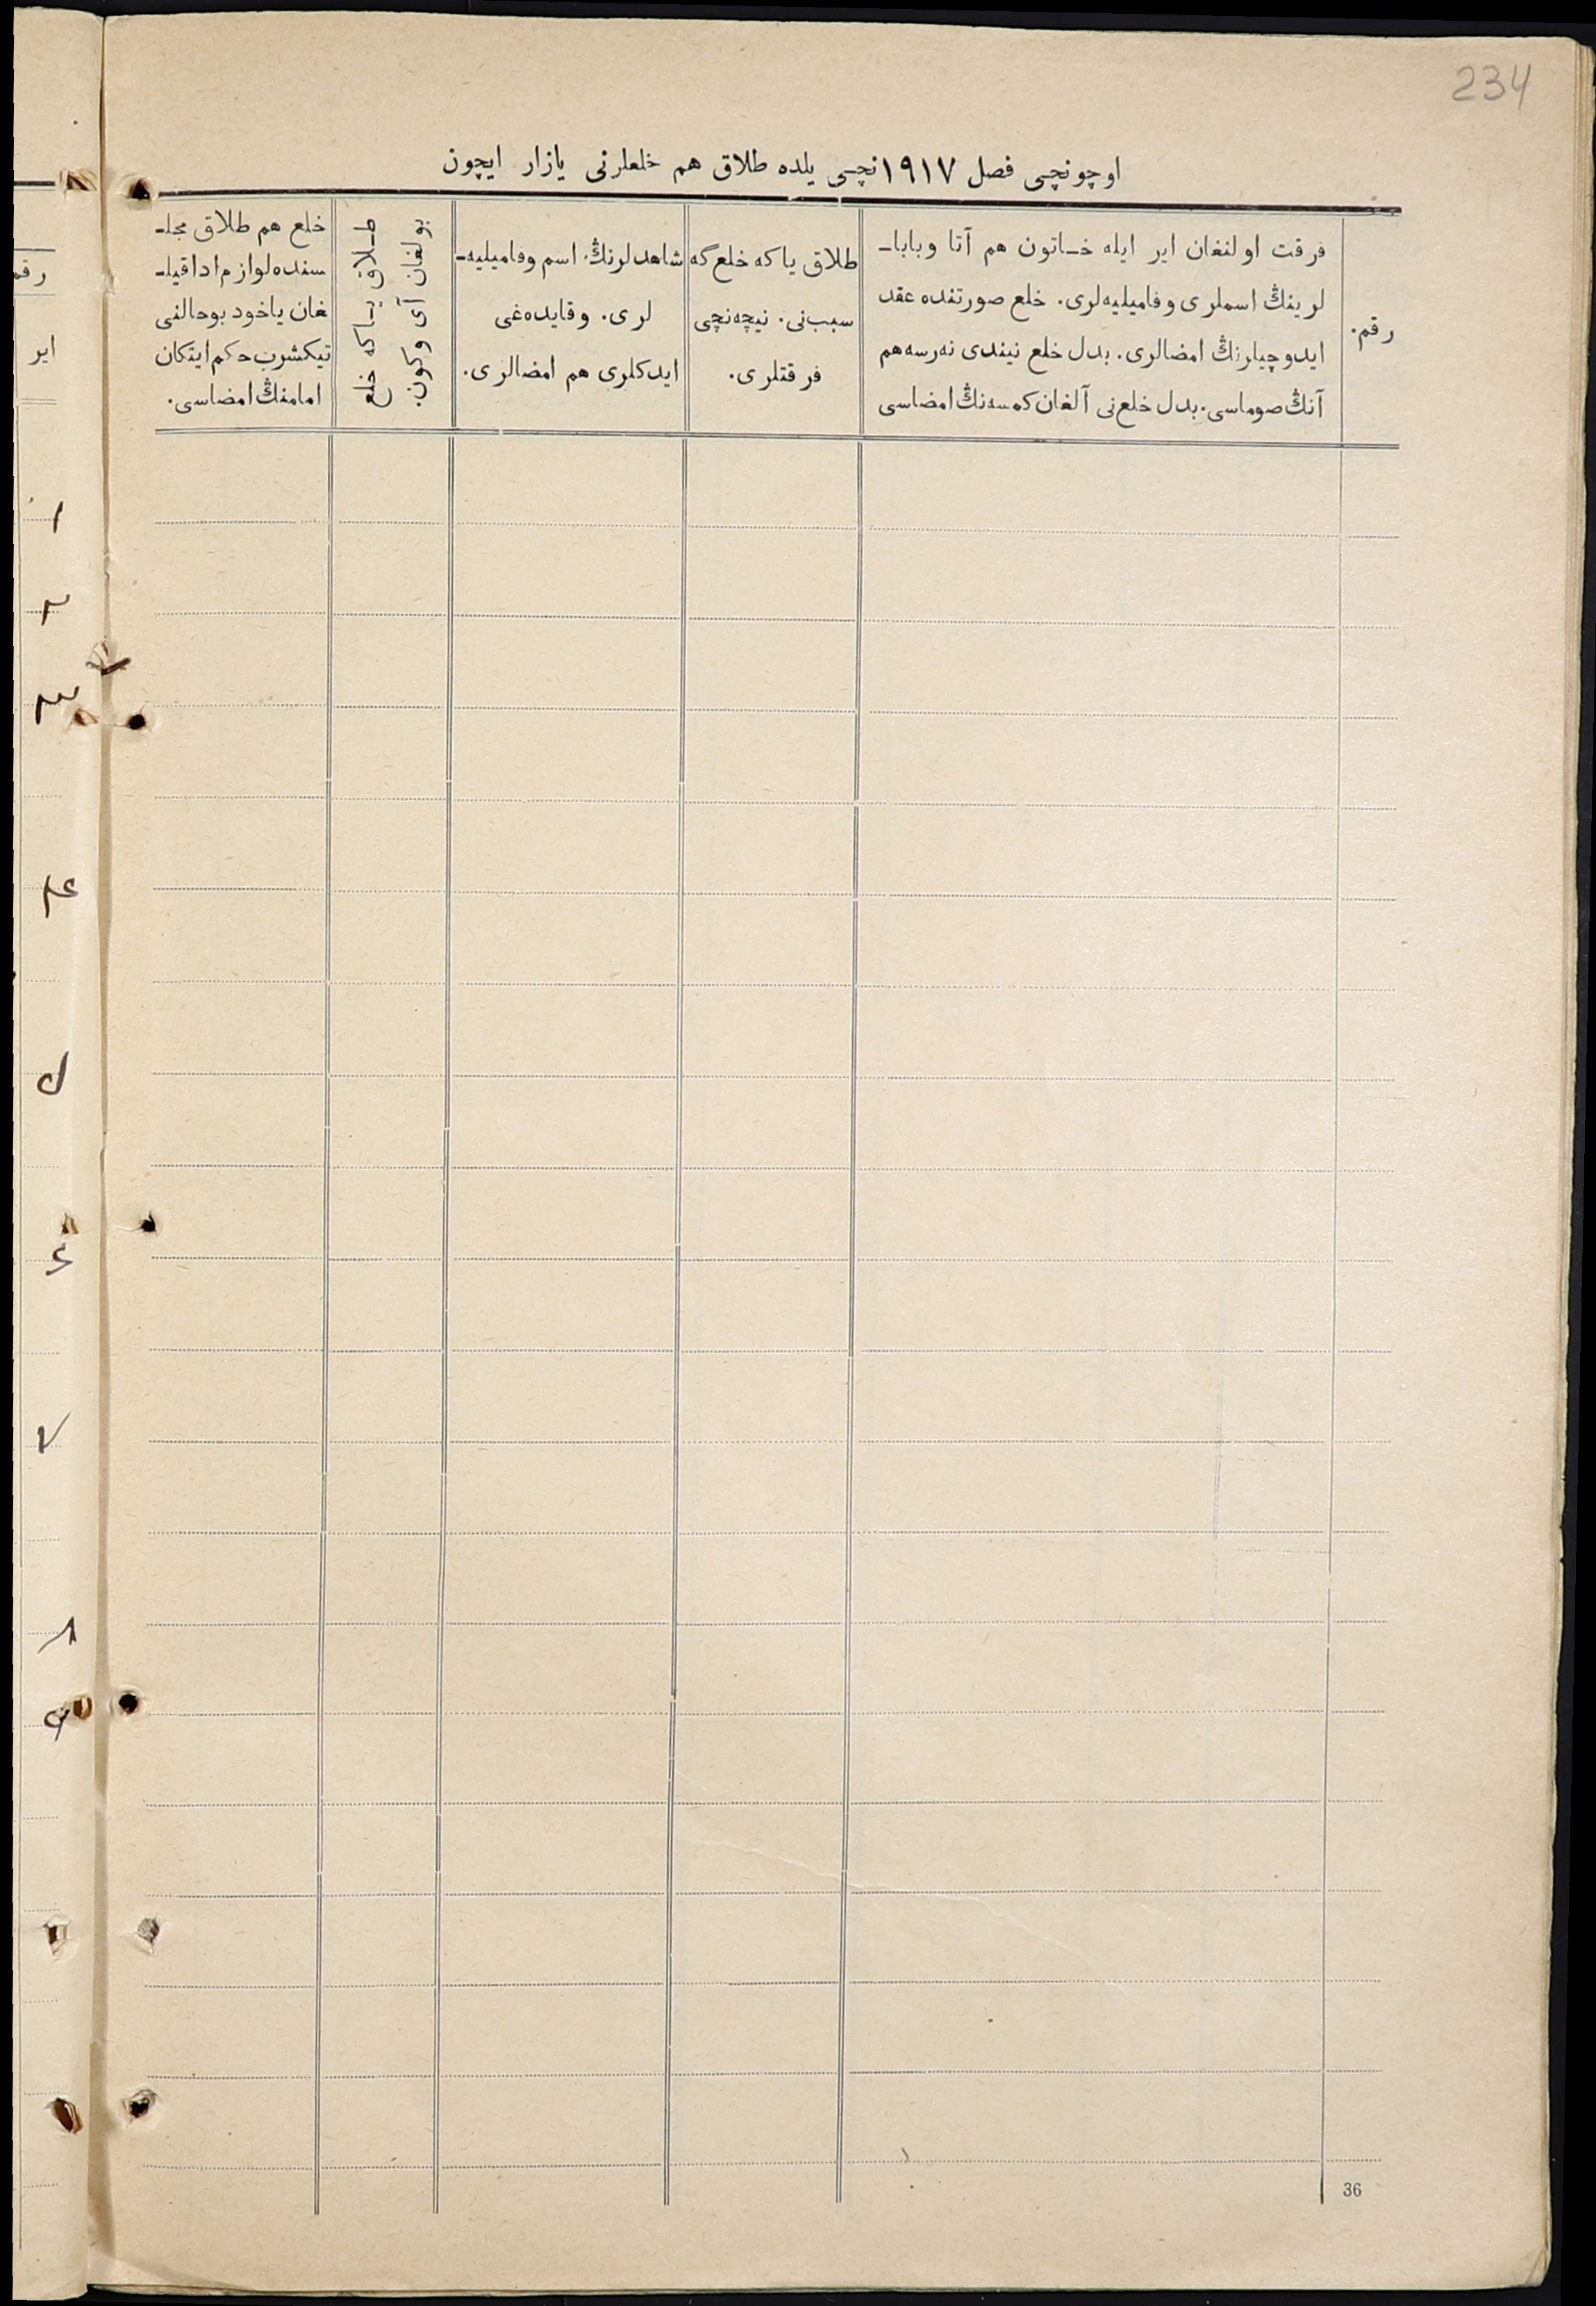 234
اوچونچی فصل ١٩١٧نچی یلده طلاق هم خلعلرنی یازار ایچون
رقم.
فرقت اولنغان ایر ایله خاتون هم آتا وبابا-
لرینڭ اسملری وفامیلیه‌لری. خلع صورتنده عقد
ایدوچیلرنڭ امضالری. بدل خلع نیندی نه‌رسه هم
آنڭ صوماسی. بدل خلع‌نی آلغان کمسه‌نڭ امضاسی
طلاق یاکه خلع‌گه
سبب‌نی. نیچه‌نچی
فرقتلری.
شاهدلرنڭ اسم وفامیلیه-
لری. وقایده‌غی
ایدکلری هم امضالری.
طلاق یاکه خلع
بولغان آی وکون.
خلع هم طلاق مجلـ
سنده لوازم ادا قیلـ
غان یاخود بوحالنی
تیکشرب حکم ایتکان
امامنڭ امضاسی.
رقم
ایر
١
٢
٣
٤
٥
٦
٧
٨
٩
36